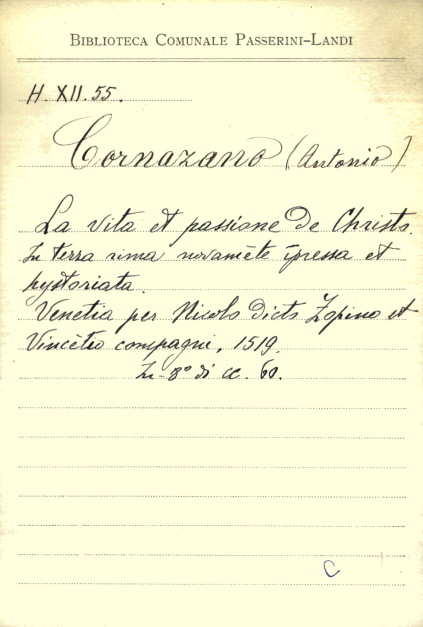 BIBLIOTECA COMUNALE PASSERINI-LANDI
H. XII. 55.
Cornazano (Antonio)
La vita et passione de Christo.
In terra rima novamẽte ĩpressa et
hystoriata.
Venetia per Nicolo dicto Zopino et
Vincẽtio compagni, 1519.
In-8° di cc. 60.
C